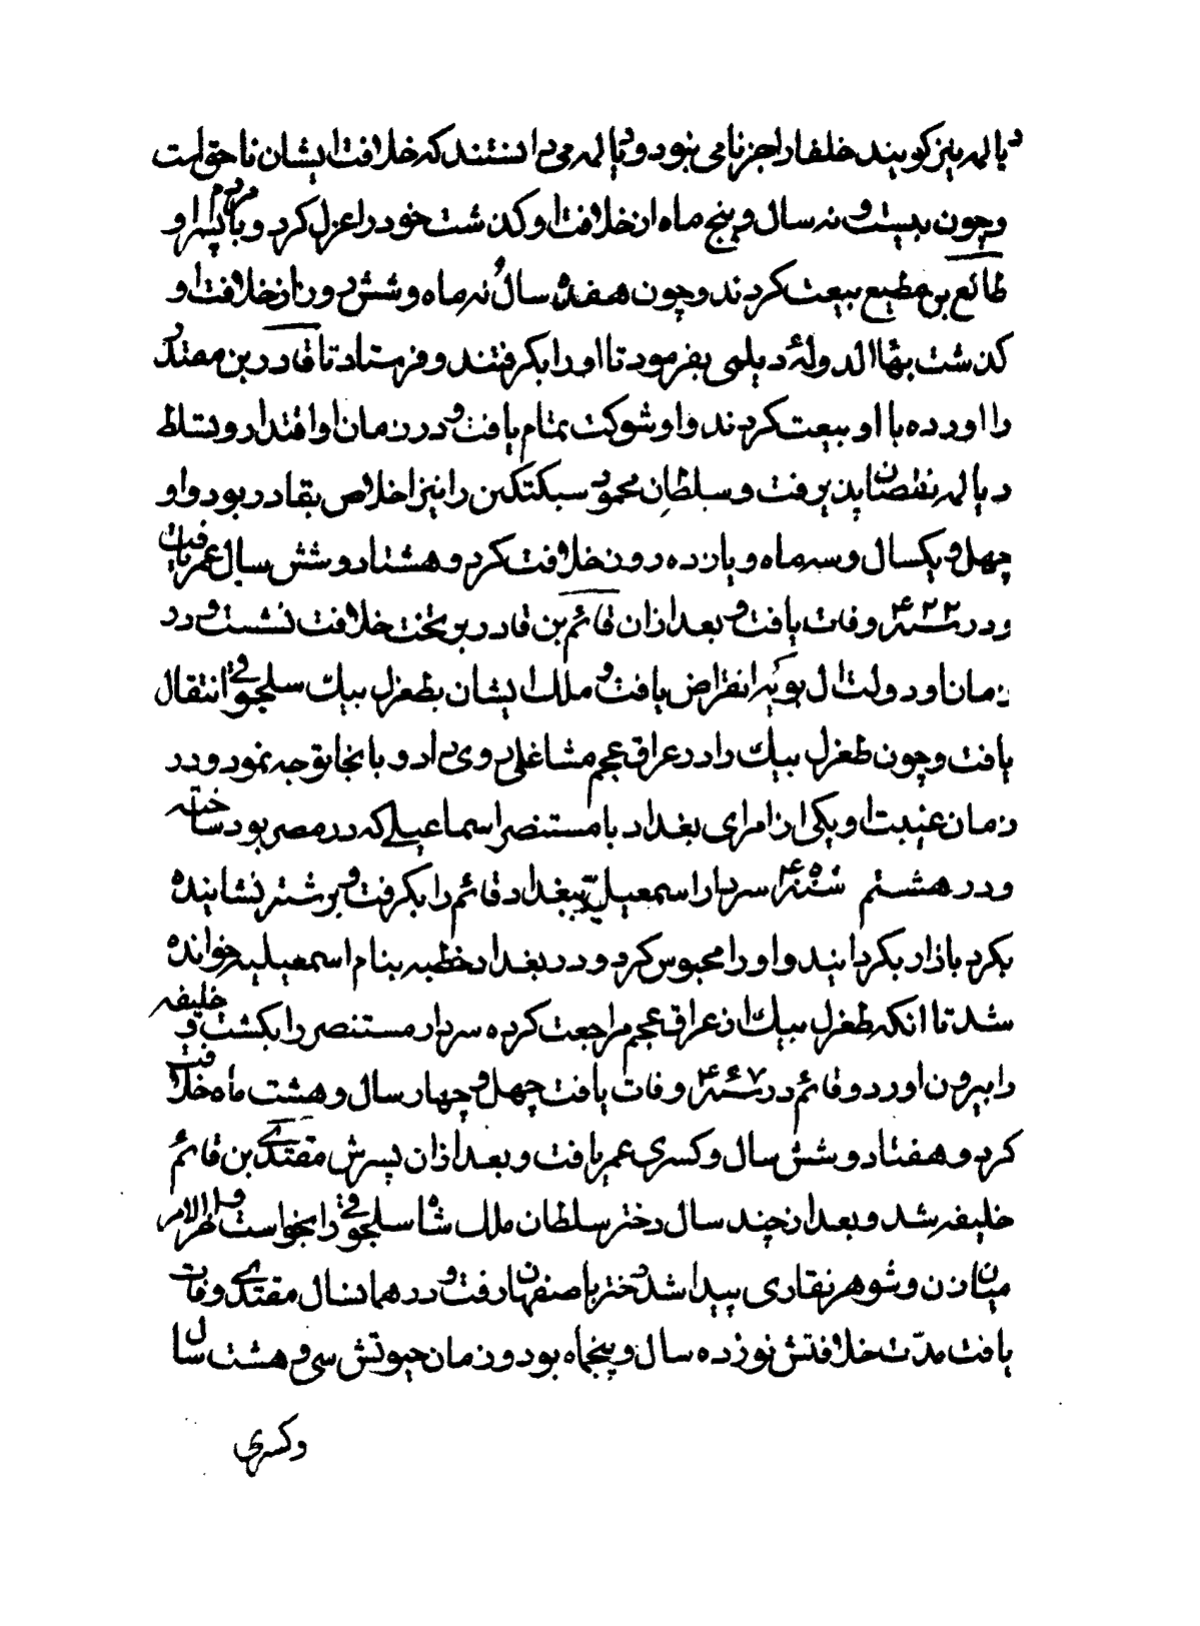 دیالمه نیز کویند خلفا را جز نامی نبود و دیالمه می دانستند که خلافت ایشان ناحق است
و چون بیست و نه سال و پنج ماه از خلافت او کذشت خود را عزل کرد و مردم با پسر او
طائع بن مطیع بیعت کردند و چون هفده سال و نه ماه و شش روز از خلافت او
کذشت بهاالدولهٔ دیلمی بفرمود تا او را بکرفتند و فرستاد تا قادر بن مقتدر
را اورده با او بیعت کردند و او شوکت تمام یافت و در زمان او اقتدار و تسلط
دیالمه نقصان پذیرفت و سلطان محمود سبکتکین را نیز اخلاص بقادر بود و او
چهل و یکسال و سه ماه و یازده روز خلافت کرد و هشتاد و شش سال عمر یافت
و در سنه ۴۲۲ وفات یافت و بعد ازان قائم بن قادر بر تخت خلافت نشست و در
زمان او دولت ال بویه انقراض یافت و ملک ایشان بطغرل بیک سلجوقی انتقال
یافت و چون طغرل بیک را در عراق عجم مشاغلی روی داد و بانجا توجه نمود و در
زمان غیبت او یکی از امرای بغداد با مستنصر اسماعیلی که در مصر بود ساخته
و در هشتم سنه ۴۵۰ سردار اسمعیلیه ببغداد قائم را بکرفت و بر شتر نشانیده
بکرد بازار بکردانید و او را محبوس کرد و در بغداد خطبه بنام اسمعیلیه خوانده
شد تا انکه طغرل بیک از عراق عجم مراجعت کرده سردار مستنصر را بکشت و خلیفه
را بیرون اورد و قائم در سنه ۴۶۷ وفات یافت چهل و چهار سال و هشت ماه خلافت
کرد و هفتاد و شش سال و کسری عمر یافت و بعد ازان پسرش مقتدی بن قائم
خلیفه شد و بعد از چند سال دختر سلطان ملک شاه سلجوقی را بخواست و اخر الامر
میان زن و شوهر نقاری پیدا شد دختر باصفهان رفت و در همانسال مقتدی وفات
یافت مدّت خلافتش نوزده سال و پنجماه بود و زمان حیوتش سی و هشت سال
و کسری